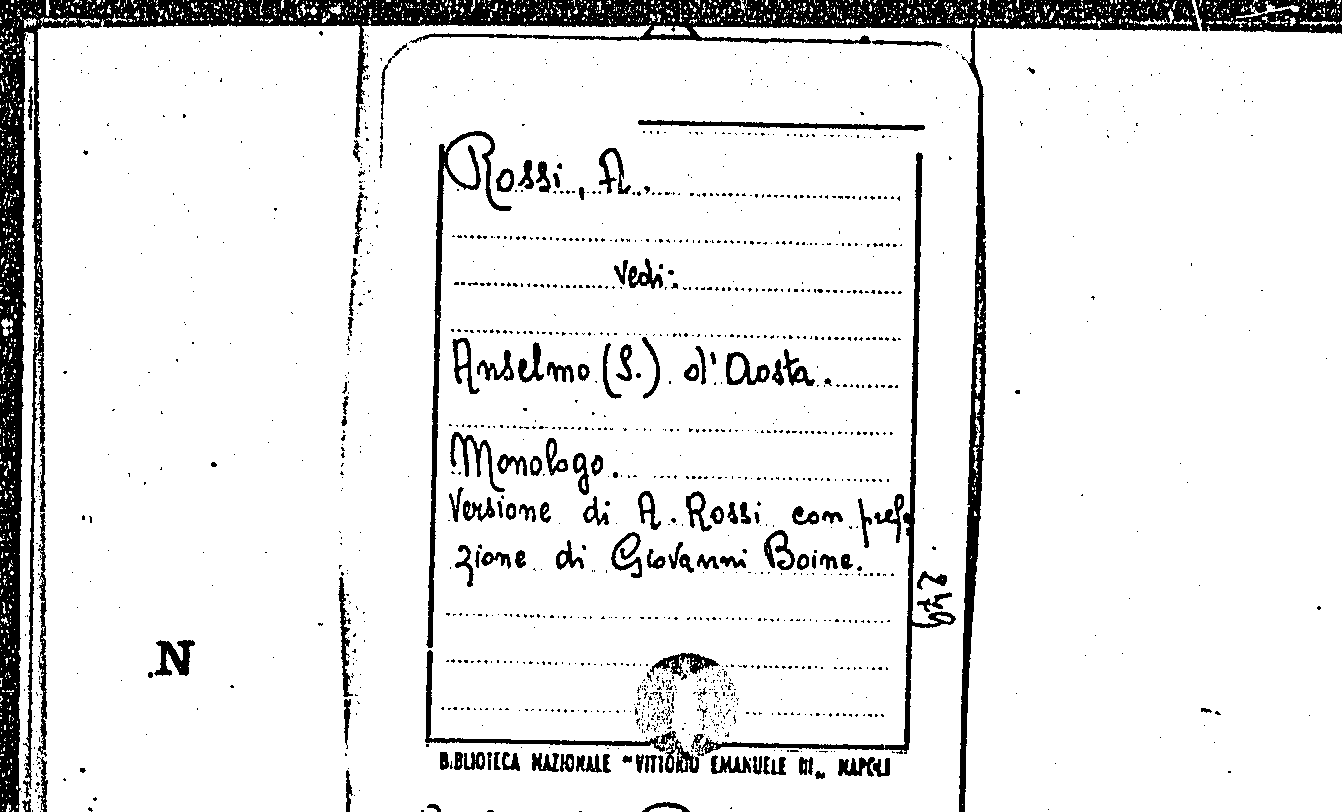 Rossi, A.
vedi:
Anselmo (S.) d'Aosta.
Monologo.
Versione di A. Rossi con prefa
zione di Giovanni Boine.
N
BIBLIOTECA NAZIONALE "VITTORIO EMANUELE III" NAPOLI